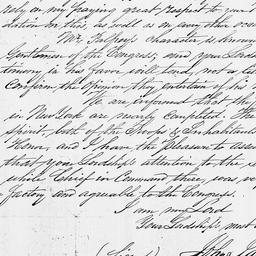 rely on my paying great respect to your
dation in this as well as on any other occa
Mr. Palfrey's character is known
Gentlemen of the Congress, and your Lordsh
timony in his favor will tend, not a little
Confirm the Opinion they entertain of his
We are informed that the
in New York are nearly compleated. The
Spirit, both of the Troops & Inhabitants
Honor, and I have the Pleasure to assure
that your Lordship's attention to the
whole Chief in Command there, was very
factory and agreeable to the Congress.
I am my Lord
Your Lordship's most
(Signed) John Ja